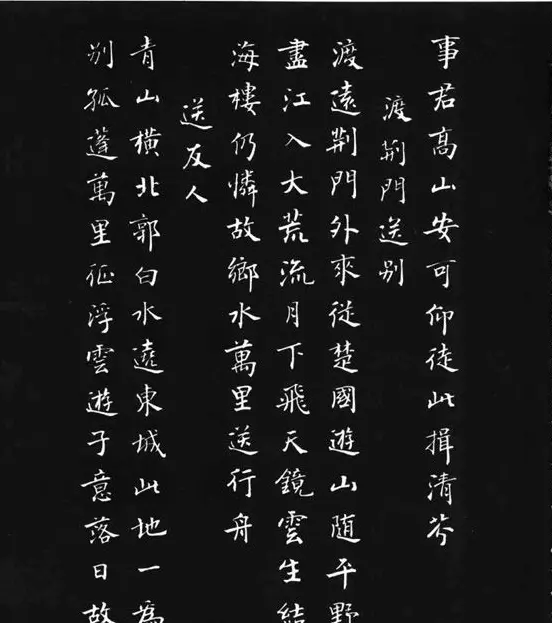 事君高山安可仰徒此揖清芬
渡荆門送别
渡遠荆門外來從楚國遊山随平野
盡江入大荒流月下飛天鏡雲生結
海樓仍憐故鄉水萬里送行舟
送友人
青山橫北郭白水遶東城此地一為
别孤蓬萬里征浮雲遊子意落日故